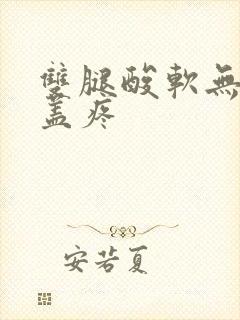 雙腿酸軟無
盖疼
安若夏